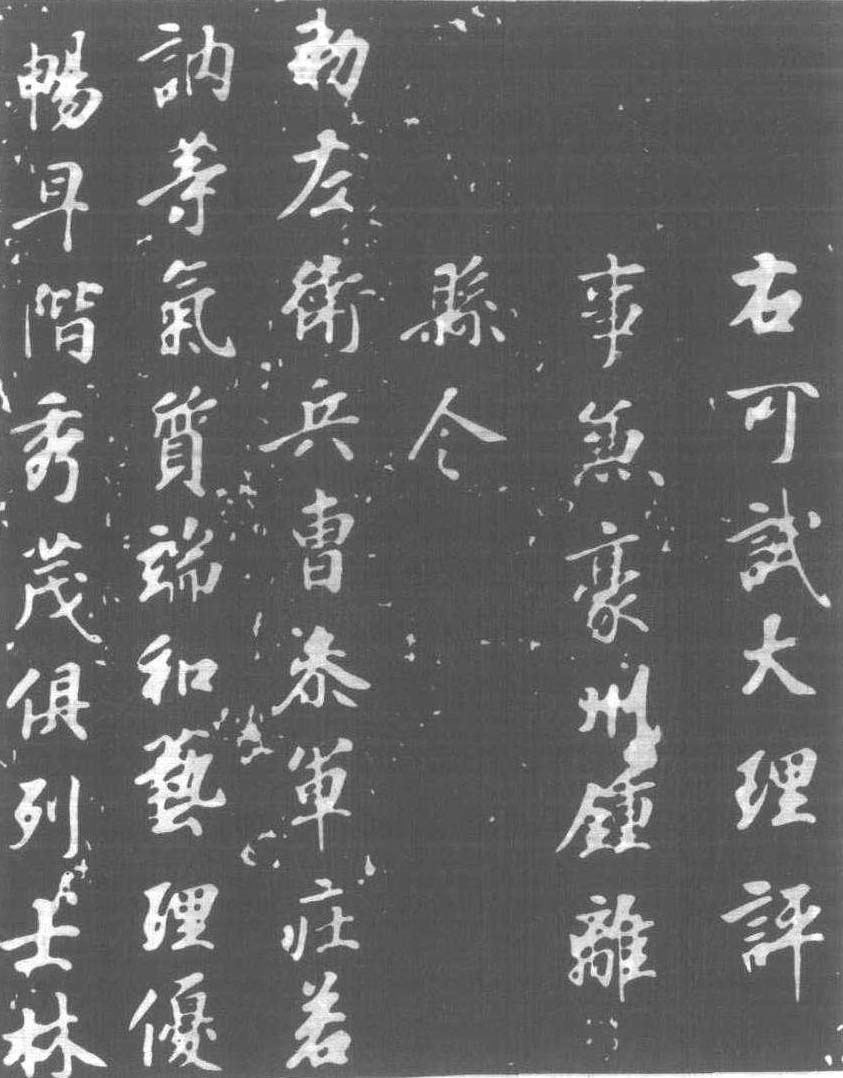 右可試大理評
事兼豪州鍾離
縣令
勅左衛兵曹參軍莊若
訥等氣質端和藝理優
暢早階秀茂俱列士林